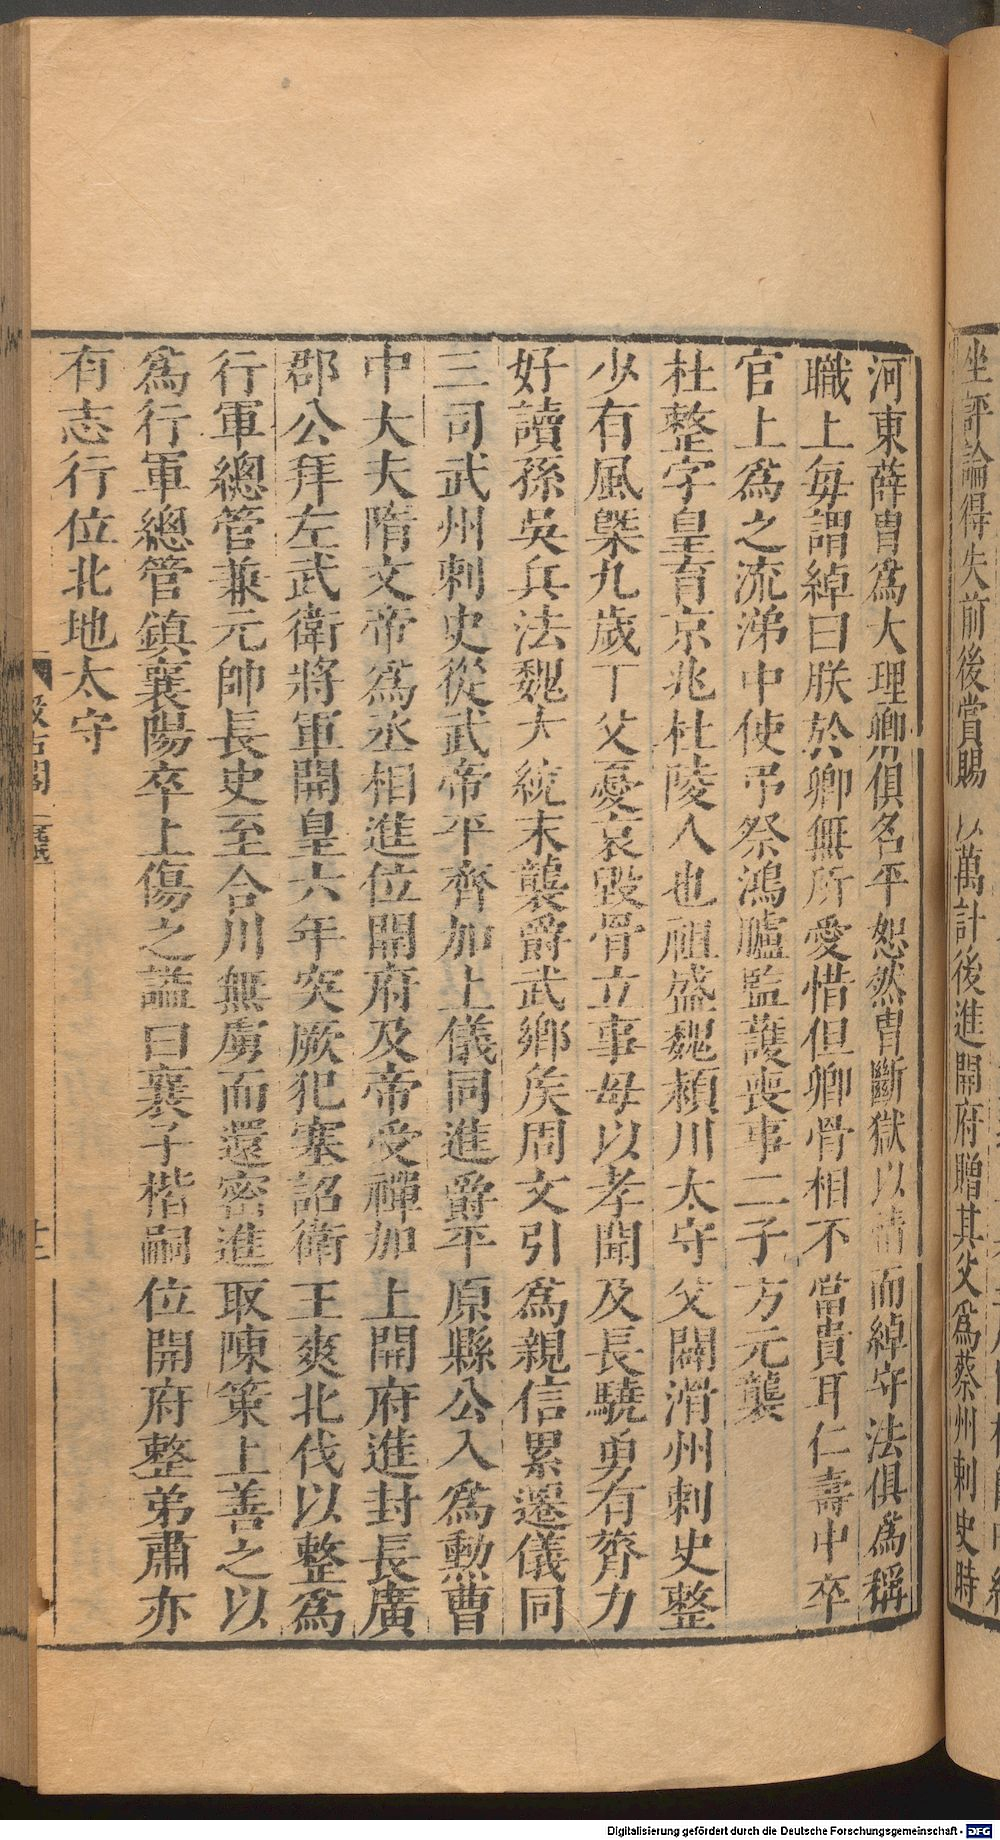 坐評論得失前後賞賜以萬計後進開府贈其父爲蔡州刺史時
河東薛胄爲大理卿俱名平恕然胄斷獄以情而綽守法俱爲稱
職上每謂綽曰朕於卿無所愛惜但卿骨相不當貴耳仁壽中卒
官上爲之流涕中使弔祭鴻臚監護喪事二子方元襲
杜整字皇育京兆杜陵人也祖盛魏潁川太守父闢渭州刺史整
少有風槩九歲丁父憂哀毀骨立事母以孝聞及長驍勇有膂力
好讀孫吳兵法魏大統末襲爵武鄉矦周文引爲親信累遷儀同
三司武州刺史從武帝平齊加上儀同進爵平原縣公入爲勳曹
中大夫隋文帝爲丞相進位開府及帝受禪加上開府進封長廣
郡公拜左武衛將軍開皇六年突厥犯塞詔衛王爽北伐以整爲
行軍總管兼元帥長史至合川無虜而還密進取陳策上善之以
爲行軍總管鎮襄陽卒上傷之諡曰襄子楷嗣位開府整弟肅亦
有志行位北地太守
Digitalisierung gefördert durch die Deutsche Forschungsgemeinschaft - DFG